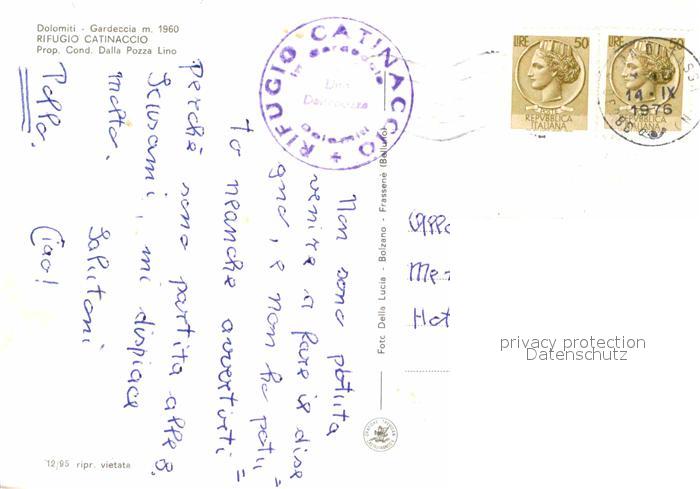 Dolomiti - Gardeccia m. 1960
RIFUGIO CATINACCIO
Prop. Cond. Dalla Pozza Lino
RIFUGIO CATINACCIO
Gardeccia
Lino
Dallapozza
Dolomiti
LIRE 50
REPVBBLICA
ITALIANA
LIRE 50
REPVBBLICA
ITALIANA
DI FASSA
14 - IX
1976
Non sono potuta
venire a fare il dise
gno, e non ho poti =
to neanche avvertirti =
Perchè sono partita alle 8.
Scusami, mi dispiace
molto.
Salutoni
Ciao!
Foto Della Lucia - Bolzano - Frassenè (Belluno)
Hot
12/95 ripr. vietata
privacy protection
Datenschutz